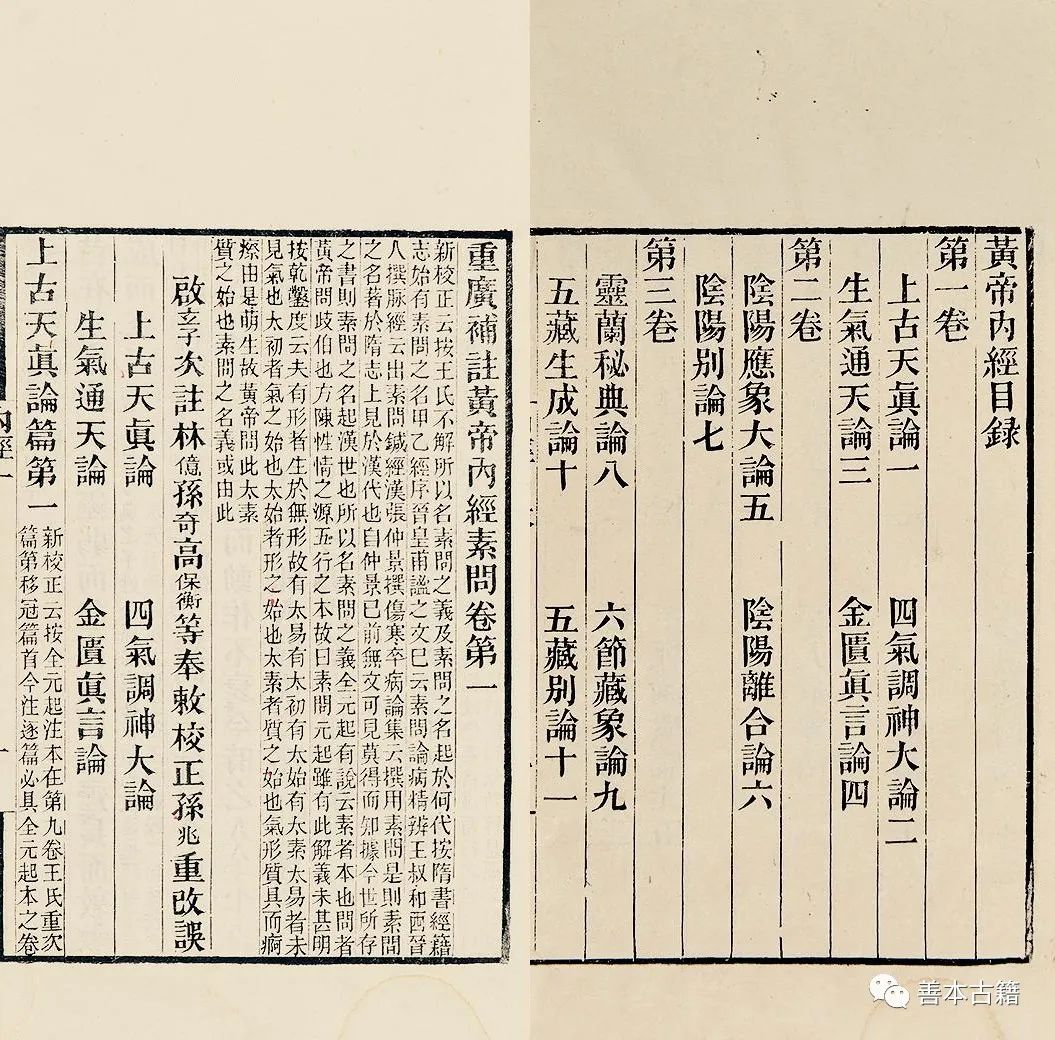 黃帝內經目録
第一卷
上古天眞論一 四氣調神大論二
生氣通天論三 金匱眞言論四
第二卷
陰陽應象大論五 陰陽離合論六
陰陽別論七
第三卷
靈蘭秘典論八 六節藏象論九
五藏生成論十 五藏別論十一
重廣補註黃帝內經素問卷第一
新校正云按王氏不解所以名素問之義及素問之名起於何代按隋書經籍
志始有素問之名甲乙經序晉皇甫謐之文已云素問論病精辨王叔和西晉
人撰脉經云出素問鍼經漢張仲景撰傷寒卒病論集云撰用素問是則素問
之名著於隋志上見於漢代也自仲景已前無文可見莫得而知據今世所存
之書則素問之名起漢世也所以名素問之義全元起有說云素者本也問者
黃帝問歧伯也方陳性情之源五行之本故曰素問元起雖有此解義未甚明
按乾鑿度云夫有形者生於無形故有太易有太初有太始有太素太易者未
見氣也太初者氣之始也太始者形之始也太素者質之始也氣形質具而痾
瘵由是萌生故黃帝問此太素
質之始也素問之名義或由此
啟玄子次註林億孫奇高保衡等奉敕校正孫兆重改誤
上古天眞論 四氣調神大論
生氣通天論 金匱眞言論
上古天眞論篇第一
新校正云按全元起注本在第九卷王氏重次
篇第移冠篇首今注逐篇必具全元起本之卷
內經一
一
善本古籍